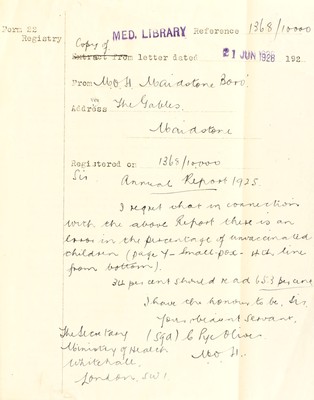 Form 22
Registry
MED. LIBRARY
Reference 1368/10000
Copy of
Extract from letter dated 21 JUN 1926 192
From M.O.H. Maidstone Boro'
Address The Gables.
Maidstone
Registered on 1368/10000
Sir
Annual Report 1925.
I regret that in connection
with the above Report there is an
error in the percentage of unvaccinated
children (page 7 - Small-pox - 4th line
from bottom).
34 per cent should read 65.3 per cent
I have the honour to be, Sir
Your obedient Servant.
The Secretary (Sgd) C Pye Oliver
Ministry of Health M.O.H.
Whitehall.
London, SW1